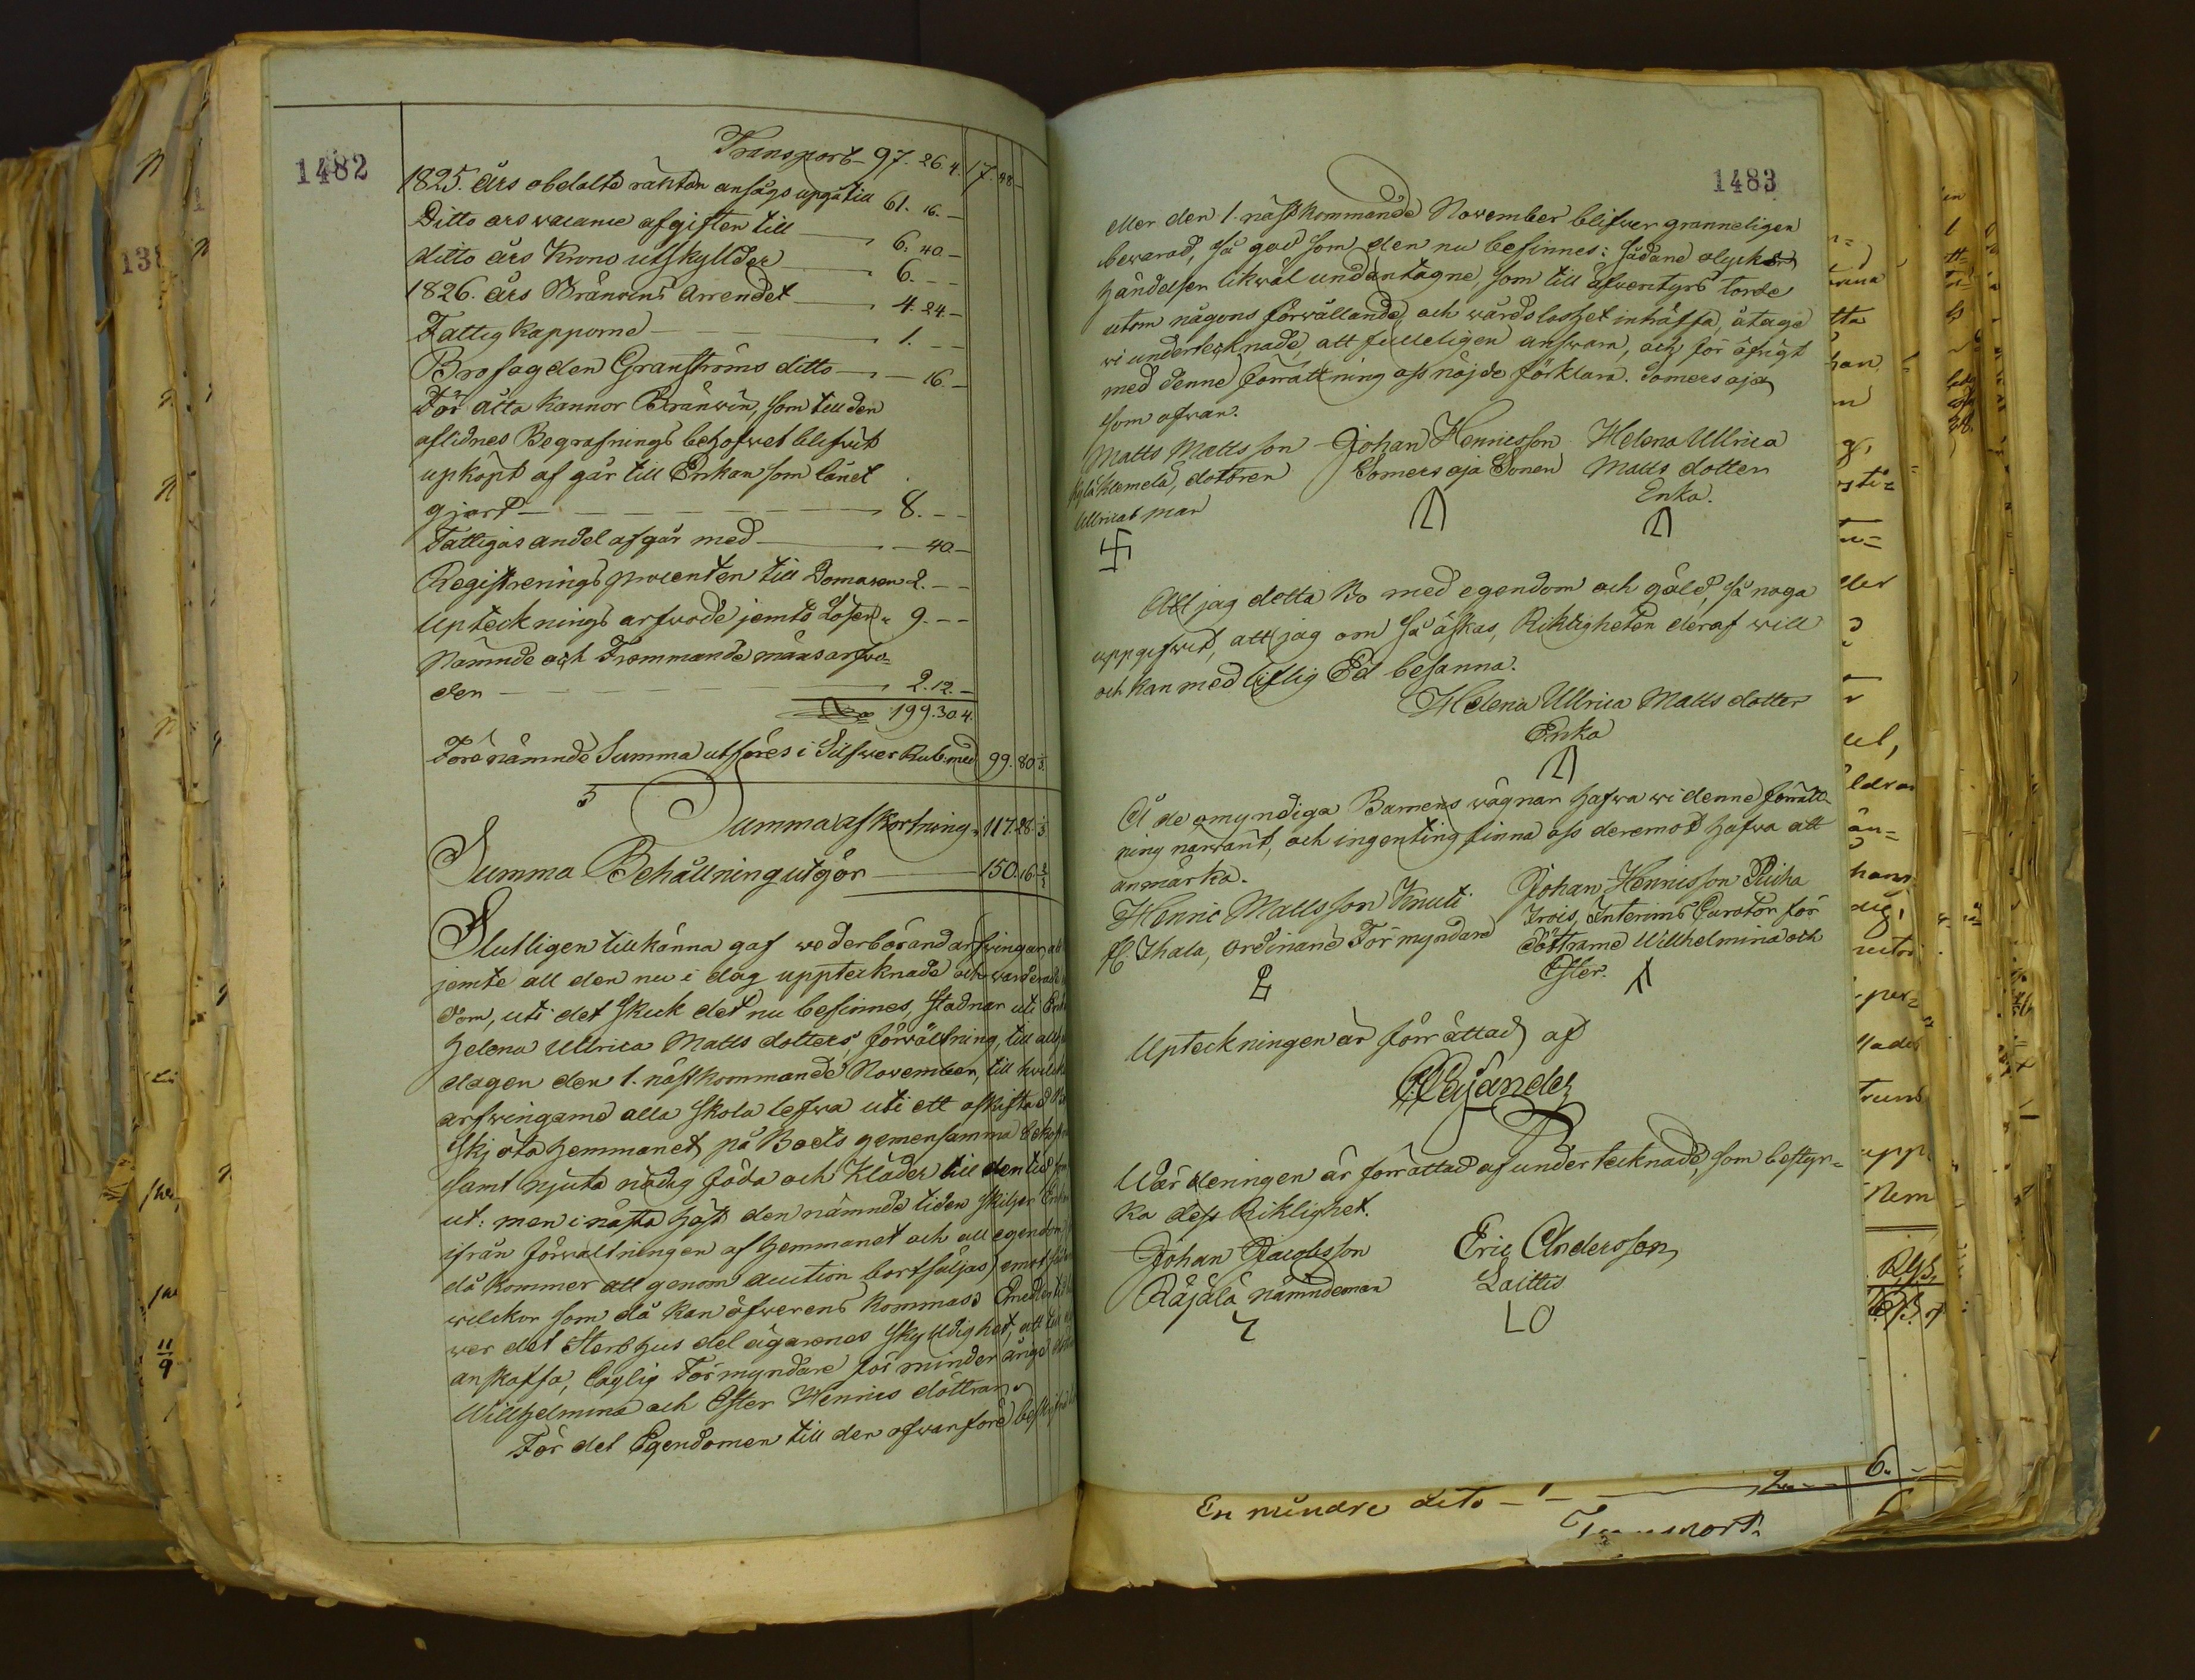 1482
Transport 97. 26. 4. 17. 48
1825. års obetalta räntan ansågs upgå till 61. 16. –
Ditto års vacance afgiften till — 6. 40 –
ditto års Krono utskyllder — 6. – –
1826. års Bränvins Arrendet — 4. 24. –
Fattig Kapporne — 1. – –
Brofogden Granströms ditto — – 16. –
För åtta Kannor Bränwin, som till den
aflidnes Begrafnings behofwet blifwit
upköpt af går till Enkan som lånet
gjort — 8. – –
Fattigas andel afgår med — – 40 –
Registrerings procenten till Domaren 2. – –
Uptecknings arfwode jemte Lösen 9. – –
Nämnde och Frammande mans arfwo=
den — 2. 12. –
199. 30. 4.
Förenämnde Summa utföres i Silfwer Rub: med 99. 80
Summa afkortning 117. 28
Summa Behållning utgör — 150. 16
Slutligen tillkänna gaf wederbörand arfwingar, att
jemte all den nu i dag upptecknade och warderade
dom, uti det skick det nu befinnes, stadnar uti
Helena Ullrica Matts dotters förwältning, till
dagen den 1. nästkommande November, till
arfwingarne alla skola lefwa uti ett oskiftad Bo
skjöta hemmanet på Boets gemensamma
samt njuta nödig föda och Kläder till den tid
ut: men i nästa höst den nämnde tiden skiljer
ifrån förwaltningen af hemmanet och all egendom
då kommer att genom auction bortsäljas, emot
wilckor som då kan öfwerens kommas
wer det Sterbhus delägarenes skyldighet, att
anskaffa, laglig Förmyndare för minderårige
Willhelmina och Ester Henrics döttrar
För det Egendomen till den ofwanföre
1483
eller den 1. nästkommande November blifwer granneligen
bewarad, så god som den nu befinnes: sådane olyckor
händelser likwäl undantagne, som till äfwentyrs torde
utom någons förwållande, och wårdslöshet inträffa, åtage
wi undertecknade, att fulleligen answara, och för öfrigt
med denne förrättning oss nöjde förklara. Somersoja
som ofwan.
Matts Matts son Johan Henricsson Helena Ullrica
Kyläklemelä, dotoren Somersoja Sonen Matts dotter
Ullricas man Enka.
Att jag detta Bo med egendom och gäld, så noga
uppgifwit, att jag om så äskas, Riktigheten deraf will
och kan med liflig Ed besanna.
Helena Ullrica Matts dotter
Enka
Å de omyndiga Barnens wägnar hafwa wi denne förrätt=
ning närwarit, och ingenting finna oss deremot hafwa att
anmärka.
Henric Mattsson Knuti Johan Henricsson
Ihala, ordinarie Förmyndare Interims Curator för
döttrarne Willhelmina och
Ester.
Upteckningen är förrättad af
Wärderingen är förrättad af undertecknade, som bestyr=
ka dess Riktighet.
Johan Jacobsson Eric Andersson
Räjälä nämndeman Laittis
En mindre dito – 2 – – 6.
Transport. 6